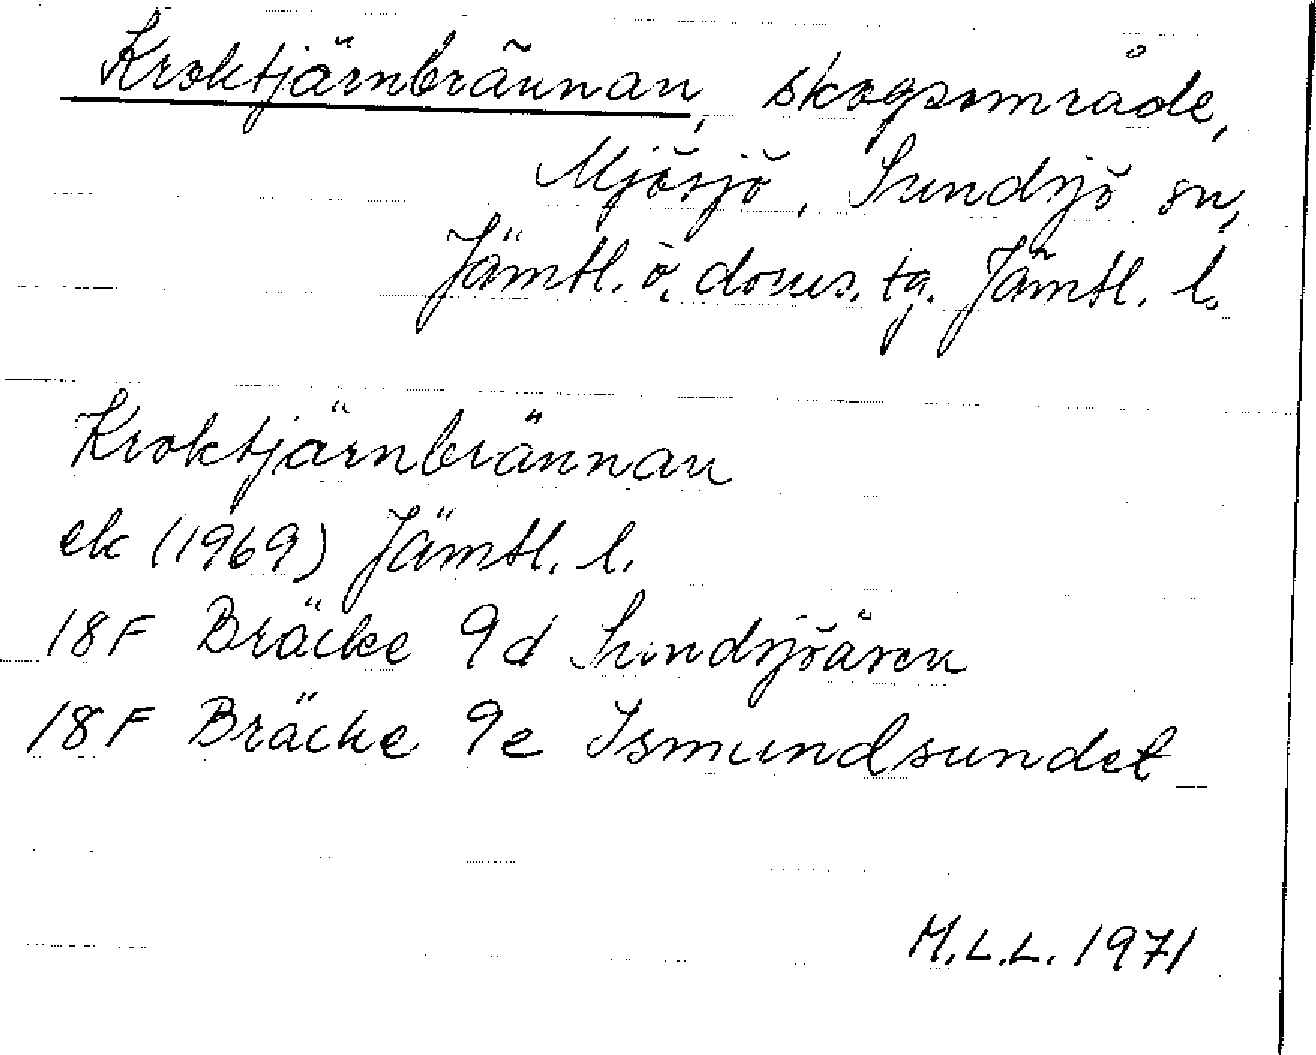 Kroktjärnbrännan, skogsområde,
Mjösjö, Sundsjö sn,
Jämtl. ö. doms. tg. Jämtl. l.
Kroktjärnbrännan
ek (1969) Jämtl. l.
18F Bräcke 9d Sundsjöåsen
18F Bräcke 9e Ismundsundet
M.L.L. 1971